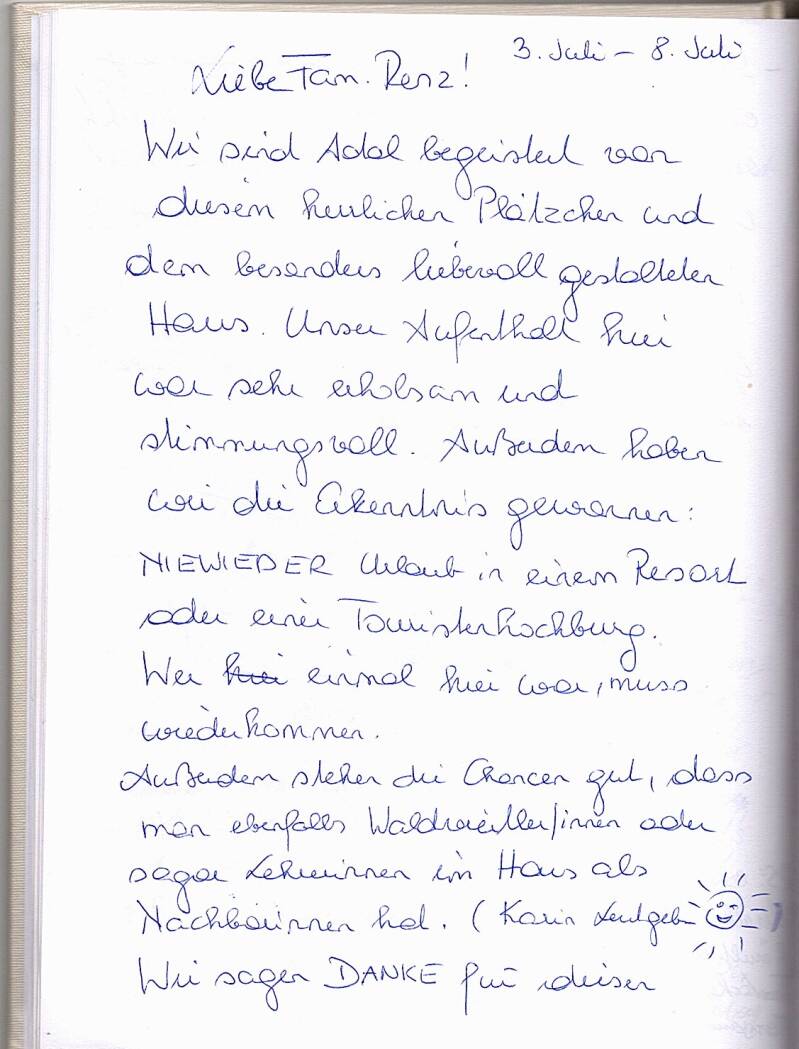 3. Juli – 8. Juli
Liebe Fam. Renz!
Wir sind total begeistert von
diesem herrlichen Plätzchen und
dem besonders liebevoll gestalteten
Haus. Unser Aufenthalt hier
war sehr erholsam und
stimmungsvoll. Außerdem haben
wir die Erkenntnis gewonnen:
NIE WIEDER Urlaub in einem Resort
oder einer Touristenhochburg.
Wer hier einmal hier war, muss
wiederkommen.
Außerdem stehen die Chancen gut, dass
man ebenfalls Waldviertler/innen oder
sogar Lehrerinnen im Haus als
Nachbarinnen hat. (Karin Leutgeb)
Wir sagen DANKE für diesen